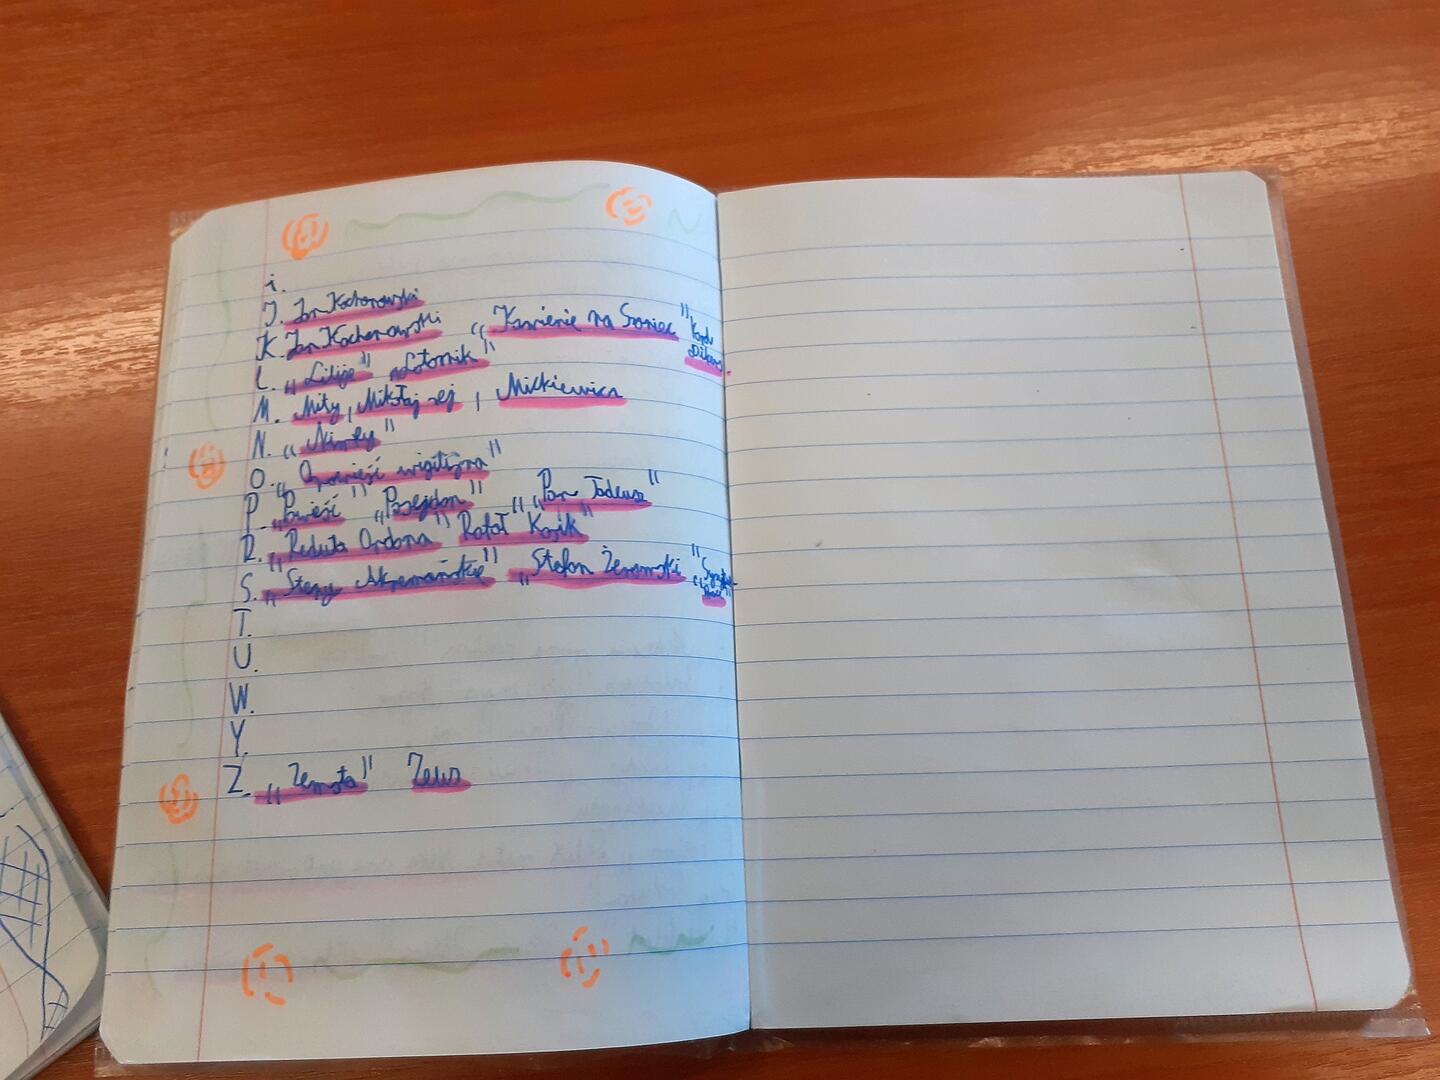 i.
J. Jan Kochanowski
K. Jan Kochanowski „Kamienie na Szaniec"
L. „Lilije" „Latarnik"
M. Mity, Mikołaj rej, Mickiewicz
N. „"
O. „Opowieść wigilijna"
P. „Powieść" „Posejdon" „Pan Tadeusz"
R. „Reduta Ordona" Rafał Kosik"
S. „Stepy Akremańskie" „Stefan Żeromski"
T.
U.
W.
Y.
Z. „Zemsta" Zeus